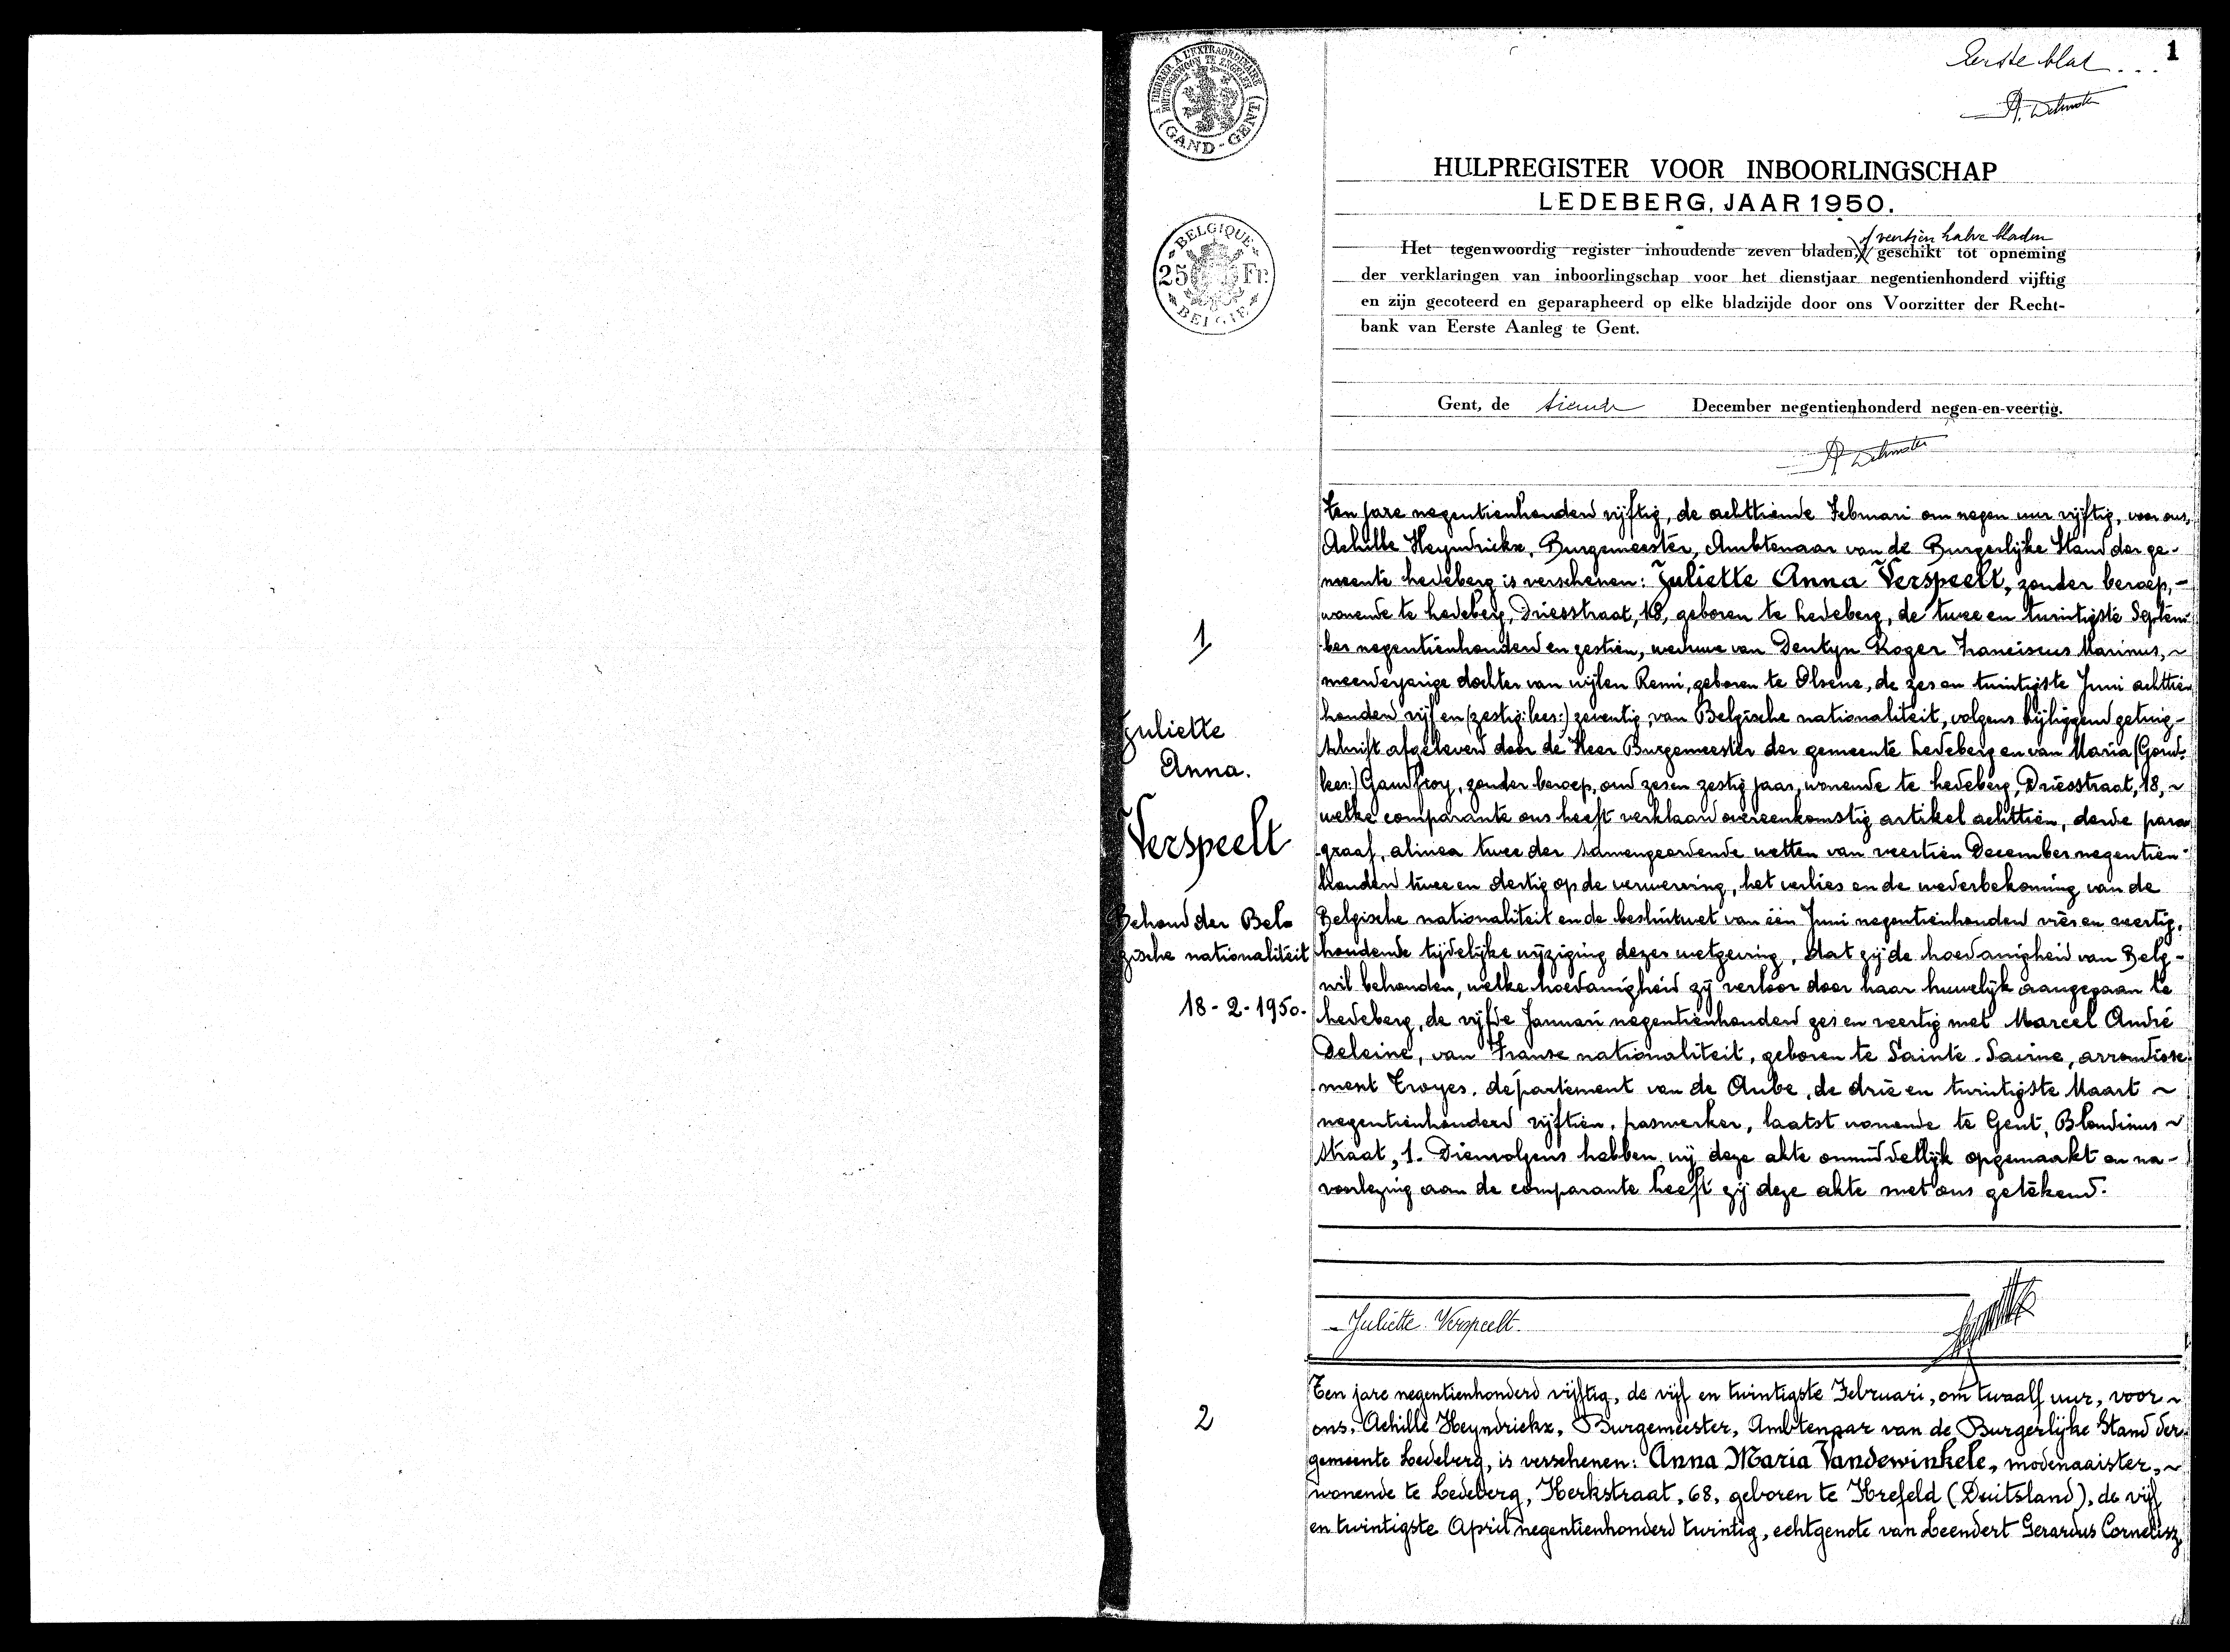 1
Eerste blad...
A TIMBRER A L'EXTRAORDINAIRE
BUITENGEWOON TE ZEGELEN
(GAND-GENT)
HULPREGISTER VOOR INBOORLINGSCHAP
LEDEBERG, JAAR 1950.
BELGIQUE
25 Fr.
BELGIE
of veertien halve bladen
Het tegenwoordig register inhoudende zeven bladen, geschikt tot opneming
der verklaringen van inboorlingschap voor het dienstjaar negentienhonderd vijftig
en zijn gecoteerd en geparapheerd op elke bladzijde door ons Voorzitter der Recht-
bank van Eerste Aanleg te Gent.
Gent, de tiende December negentienhonderd negen-en-veertig.
1
Juliette
Anna.
Verspeelt
Behoud der Bel-
gische nationaliteit
18-2-1950.
Ten jare negentienhonderd vijftig, de achttiende Februari om negen uur vijftig, voor ons,
Achille Heyndrickx, Burgemeester, Ambtenaar van de Burgerlijke Stand der ge-
meente Ledeberg is verschenen: Juliette Anna Verspeelt, zonder beroep,-
wonende te Ledeberg, Driesstraat, 18, geboren te Ledeberg, de twee en twintigste Septem-
ber negentienhonderd en zestien, weduwe van Dentyn Roger Franciscus Marinus, ~
meerderjarige dochter van wijlen Remi, geboren te Olsene, de zes en twintigste Juni achttien
honderd vijf en (zestig: lees:) zeventig, van Belgische nationaliteit, volgens bijliggend getuig-
schrift afgeleverd door de Heer Burgemeester der gemeente Ledeberg en van Maria (Goud:
lees:) Gaudfroy, zonder beroep, oud zes en zestig jaar, wonende te Ledeberg, Driesstraat, 18, ~
welke comparante ons heeft verklaard overeenkomstig artikel achttien, derde para
graaf, alinea twee der samengeordende wetten van veertien December negentien-
honderd twee en dertig op de verwerving, het verlies en de wederbekoming van de
Belgische nationaliteit en de besluitwet van één Juni negentienhonderd vier en veertig,
houdende tijdelijke wijziging dezer wetgeving, dat zij de hoedanigheid van Belg-
wil behouden, welke hoedanigheid zij verloor door haar huwelijk aangegaan te
Ledeberg, de vijfde Januari negentienhonderd zes en veertig met Marcel André
Deleine, van Franse nationaliteit, geboren te Sainte-Savine, arrondisse-
ment Troyes, département van de Aube, de drie en twintigste Maart ~
negentienhonderd vijftien, paswerker, laatst wonende te Gent, Blandinus ~
straat, 1. Dienvolgens hebben wij deze akte onmiddellijk opgemaakt en na-
voorlezing aan de comparante heeft zij deze akte met ons getekend.
Juliette Verspeelt.
2
Ten jare negentienhonderd vijftig, de vijf en twintigste Februari, om twaalf uur, voor ~
ons, Achille Heyndrickx, Burgemeester, Ambtenaar van de Burgerlijke Stand der
gemeente Ledeberg, is verschenen: Anna Maria Vandewinkele, modenaaister, ~
wonende te Ledeberg, Kerkstraat, 68, geboren te Krefeld (Duitsland), de vijf
en twintigste April negentienhonderd twintig, echtgenote van Leendert Gerardus Cornelisz,